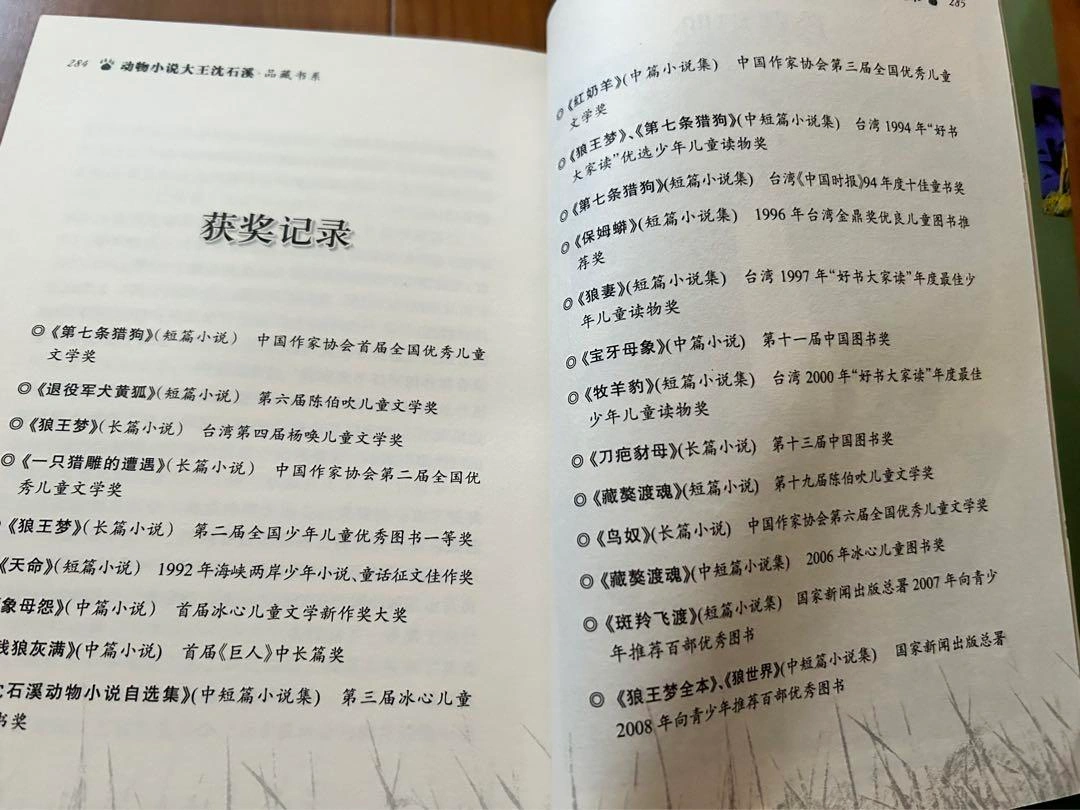 284 动物小说大王沈石溪·品藏书系
获奖记录
◎《第七条猎狗》(短篇小说) 中国作家协会首届全国优秀儿童
文学奖
◎《退役军犬黄狐》(短篇小说) 第六届陈伯吹儿童文学奖
◎《狼王梦》(长篇小说) 台湾第四届杨唤儿童文学奖
◎《一只猎雕的遭遇》(长篇小说) 中国作家协会第二届全国优
秀儿童文学奖
《狼王梦》(长篇小说) 第二届全国少年儿童优秀图书一等奖
《天命》(短篇小说) 1992年海峡两岸少年小说、童话征文佳作奖
象母怨》(中篇小说) 首届冰心儿童文学新作奖大奖
残狼灰满》(中篇小说) 首届《巨人》中长篇奖
沈石溪动物小说自选集》(中短篇小说集) 第三届冰心儿童
书奖
285
◎《红奶羊》(中篇小说集) 中国作家协会第三届全国优秀儿童
文学奖
◎《狼王梦》、《第七条猎狗》(中短篇小说集) 台湾1994年“好书
大家读”优选少年儿童读物奖
◎《第七条猎狗》(短篇小说集) 台湾《中国时报》94年度十佳童书奖
◎《保姆蟒》(短篇小说集) 1996年台湾金鼎奖优良儿童图书推
荐奖
◎《狼妻》(短篇小说集) 台湾1997年“好书大家读”年度最佳少
年儿童读物奖
◎《宝牙母象》(中篇小说) 第十一届中国图书奖
◎《牧羊豹》(短篇小说集) 台湾2000年“好书大家读”年度最佳
少年儿童读物奖
◎《刀疤豺母》(长篇小说) 第十三届中国图书奖
◎《藏獒渡魂》(短篇小说) 第十九届陈伯吹儿童文学奖
◎《鸟奴》(长篇小说) 中国作家协会第六届全国优秀儿童文学奖
◎《藏獒渡魂》(中短篇小说集) 2006年冰心儿童图书奖
◎《斑羚飞渡》(短篇小说集) 国家新闻出版总署2007年向青少
年推荐百部优秀图书
◎《狼王梦全本》、《狼世界》(中短篇小说集) 国家新闻出版总署
2008年向青少年推荐百部优秀图书